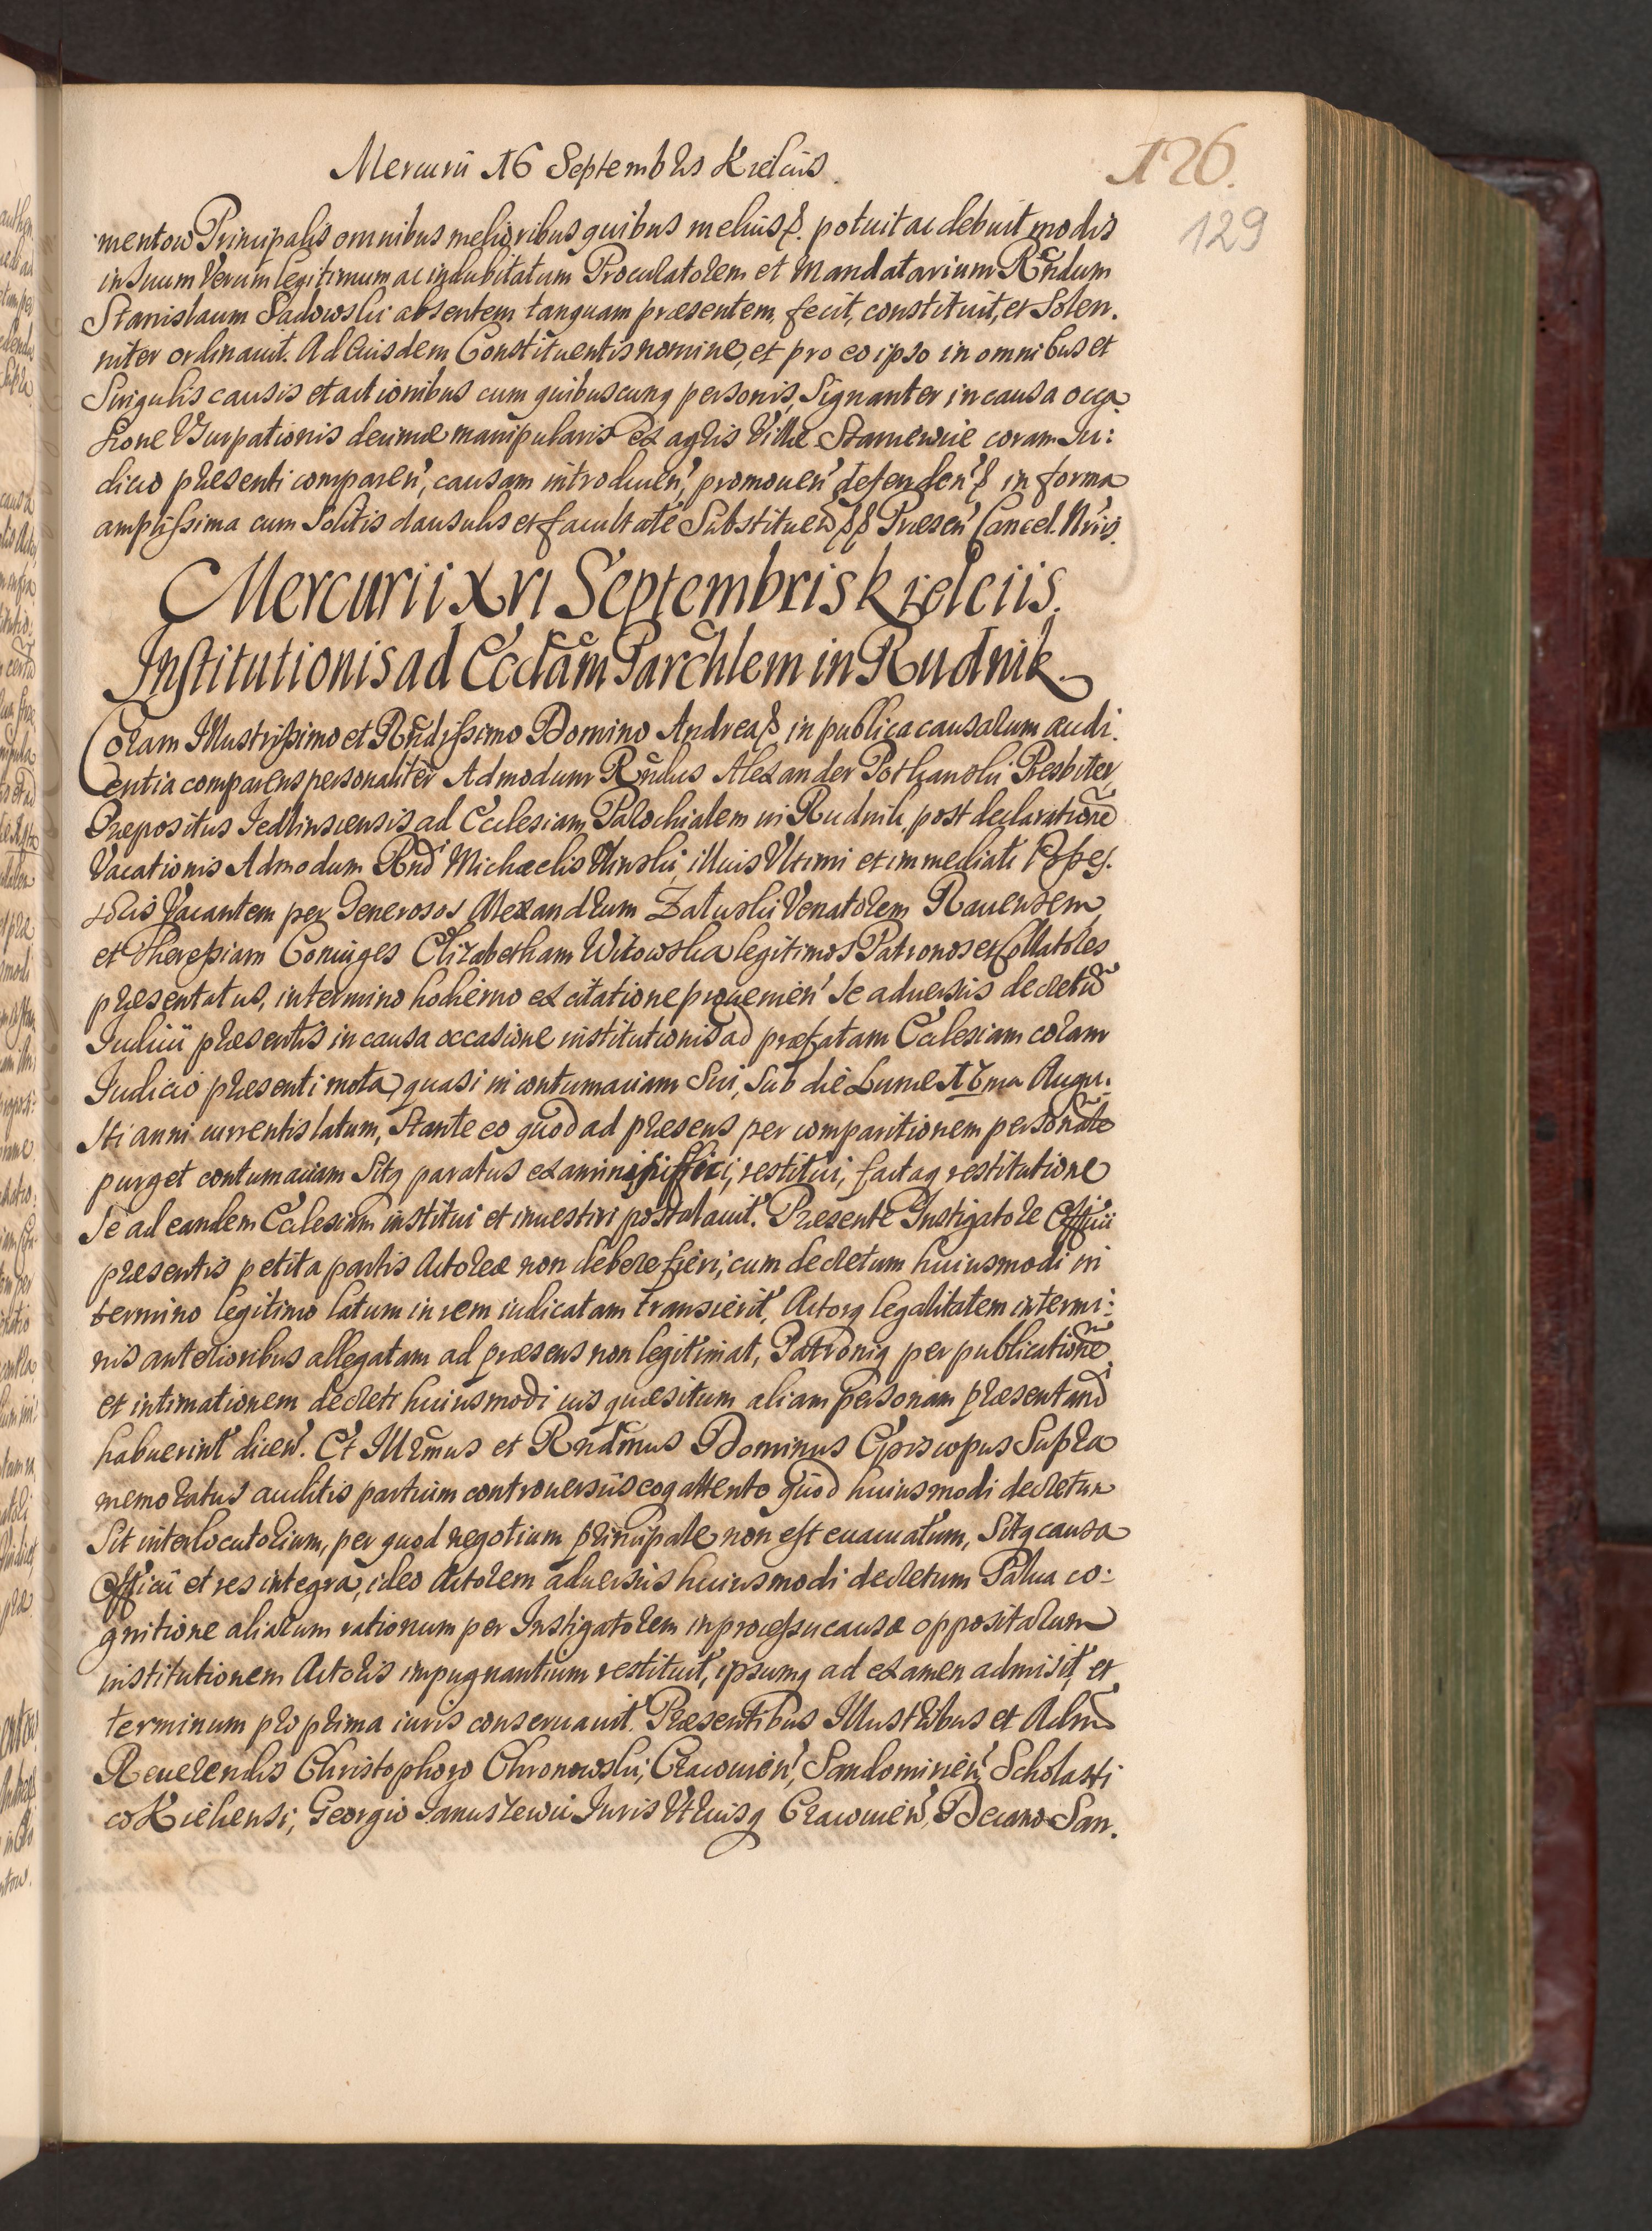 Mercurii 16 Septembris Kielciis.
126.
129
mentow Principalis omnibus melioribus quibus melius &. potuit ac debuit modis
in suum Verum legitimum ac indubitatum Procuratorem et Mandatarium Rndum
Stanislaum Sadowski absentem tanquam præsentem, fecit, constituit, et Solen.
niter ordinauit. Ad Eiusdem Constituentis nomine, et pro eo ipso in omnibus et
Singulis causis et actionibus cum quibuscunq personis, Signanter in causa occa
sione Vsurpationis decimæ manipularis ex agris Villæ coram Iu:
dicio præsenti comparen', causam introducen', promouen' defenden' & in forma
amplissima cum Solitis clausulis et facultate Substituen' && Præsen' Cancel. Nris.
Mercurii XVI Septembris Kielciis.
Institutionis ad Eccłam Parchlem in Rudnik.
Coram Illustrissimo et Rndissimo Domino Andrea & in publica causarum audi.
entia comparens personaliter Admodum Rndus Alexander Presbiter
Præpositus Iedlinscensis ad Ecclesiam Parochialem in Rudnik, post declarationẽ
Vacationis Admodum Rnd' Michaelis illius Vltimi et immediati Posses.
soris Vacantem per Generosos Alexandrum Załuski Venatorem Rauensem
et Theressiam Coniuges Elizabetham Witowska legitimos Patronos et Collatores
præsentatus, in termino hodierno ex citatione prouenien' Se aduersus decretũ
Iudicii præsentis in causa occasione institutionis ad præfatam Ecclesiam coram
Iudicio præsenti mota, quasi in contumaciam Sui, Sub die Lunæ 17ma Augu.
sti anni currentis latum, Stante eo quod ad præsens per comparitionem personalẽ
purget contumaciam Sitq paratus examini restitui, factaq restitutione
Se ad eandem Ecclesiam institui et inuestiri postulauit. Præsente Instigatore Officii
præsentis petita partis Actoreæ non debere fieri, cum decretum huiusmodi in
termino legitimo latum in rem iudicatam transierit, Actorq legalitatem in termi:
nis anterioribus allegatam ad præsens non legitimat, Patroniq per publicationẽ
et intimationem decreti huiusmodi ius quæsitum aliam personam præsentand
habuerint dicen'. Et Illrmus et Rndmus Dominus Episcopus Supra
memoratus auditis partium controuersiis eoq attento quod huiusmodi decretum
Sit interlocutorium, per quod negotium principale non est euacuatum, Sitq causa
Officii et res integra, ideo Actorem aduersus huiusmodi decretum Salua co:
gnitione aliarum rationum per Instigatorem in processu causæ oppositarum
institutionem Actoris impugnantium restituit, ipsumq ad examen admisit, et
terminum pro prima iuris conseruauit. Præsentibus Illustribus et Admd
Reuerendis Christophoro Chronowski, Cracouien', Sandomirien', Scholasti
co Kielcensi, Georgio Ianuszewic Iuris Vtriusq Cracouien', Decano San.